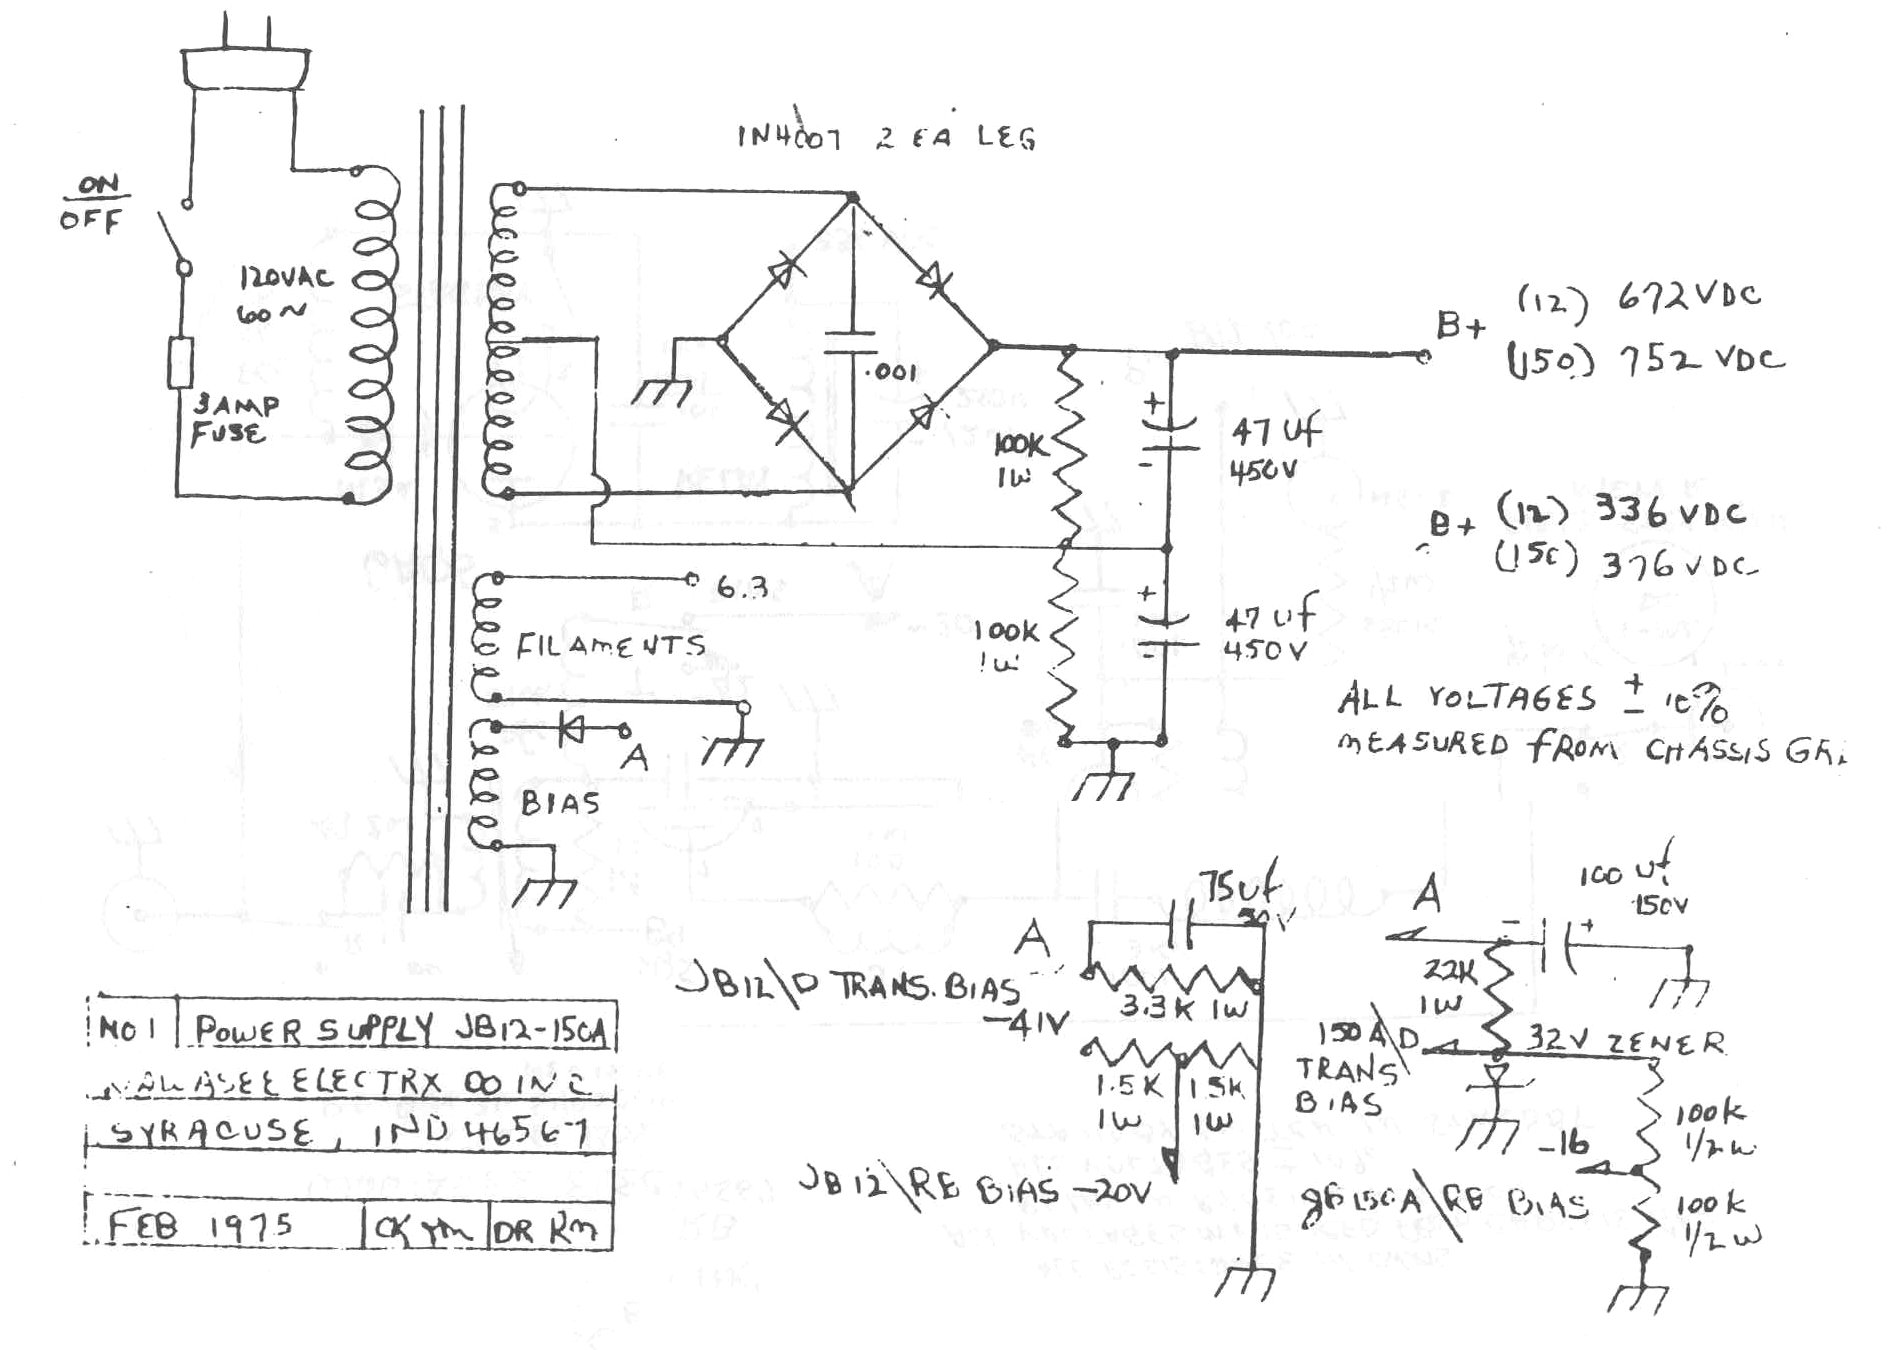 1N4007 2 EA LEG
ON
OFF
120VAC
60~
3AMP
FUSE
.001
100K
1W
+
-
47 uf
450V
B+
(12) 672VDC
(150) 752 VDC
B+
(12) 336 VDC
(150) 376 VDC
100K
1W
+
-
47 uf
450V
6.3
FILAMENTS
A
BIAS
ALL VOLTAGES ± 10%
MEASURED FROM CHASSIS GR.
75uf
A
JB12\D TRANS. BIAS
-41V
3.3K 1W
1.5K
1W
1.5K
1W
JB12\RE BIAS -20V
A
-
+
100 uf
150V
22K
1W
150A\D
TRANS
BIAS
32V ZENER
100K
1/2 W
-16
JB150A\RE BIAS
100K
1/2 W
NO 1 POWER SUPPLY JB12-150A
ELECTRX CO INC
SYRACUSE, IND 46567
FEB 1975
CK
DR RM